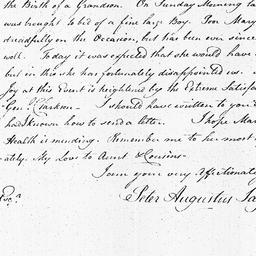 the Birth of a Grandson. On Sunday Morning
was thought to be of a fine large Boy. Poor Mary
dreadfully on the Occasion, but has been ever since
well. Today it was expected that she would have
but in this she has fortunately disappointed us.
Joy at this Event is heightened by the Extreme Satisfa
Genl. Clarkson. I should have written to you
had I known how to send a letter. I hope Mar
Health is mending. Remember me to her most
ately. My Love to Aunt & Cousins
I am your very Affectionate
Esqr. Peter Augustus Ja